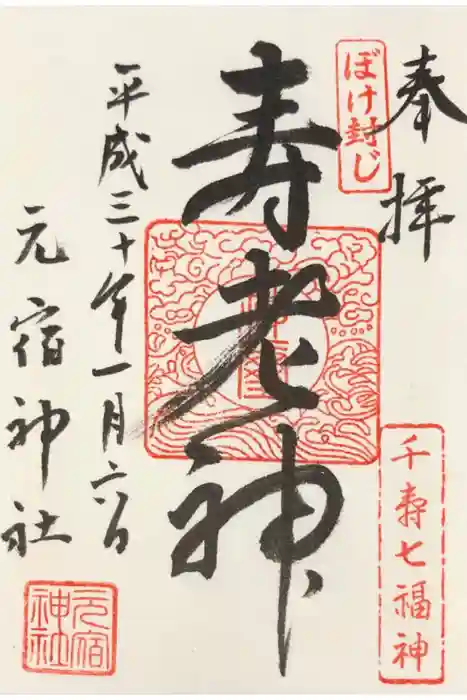 奉拝
ぼけ封じ
千寿七福神
寿老神
平成三十年一月六日
元宿神社
元宿
神社